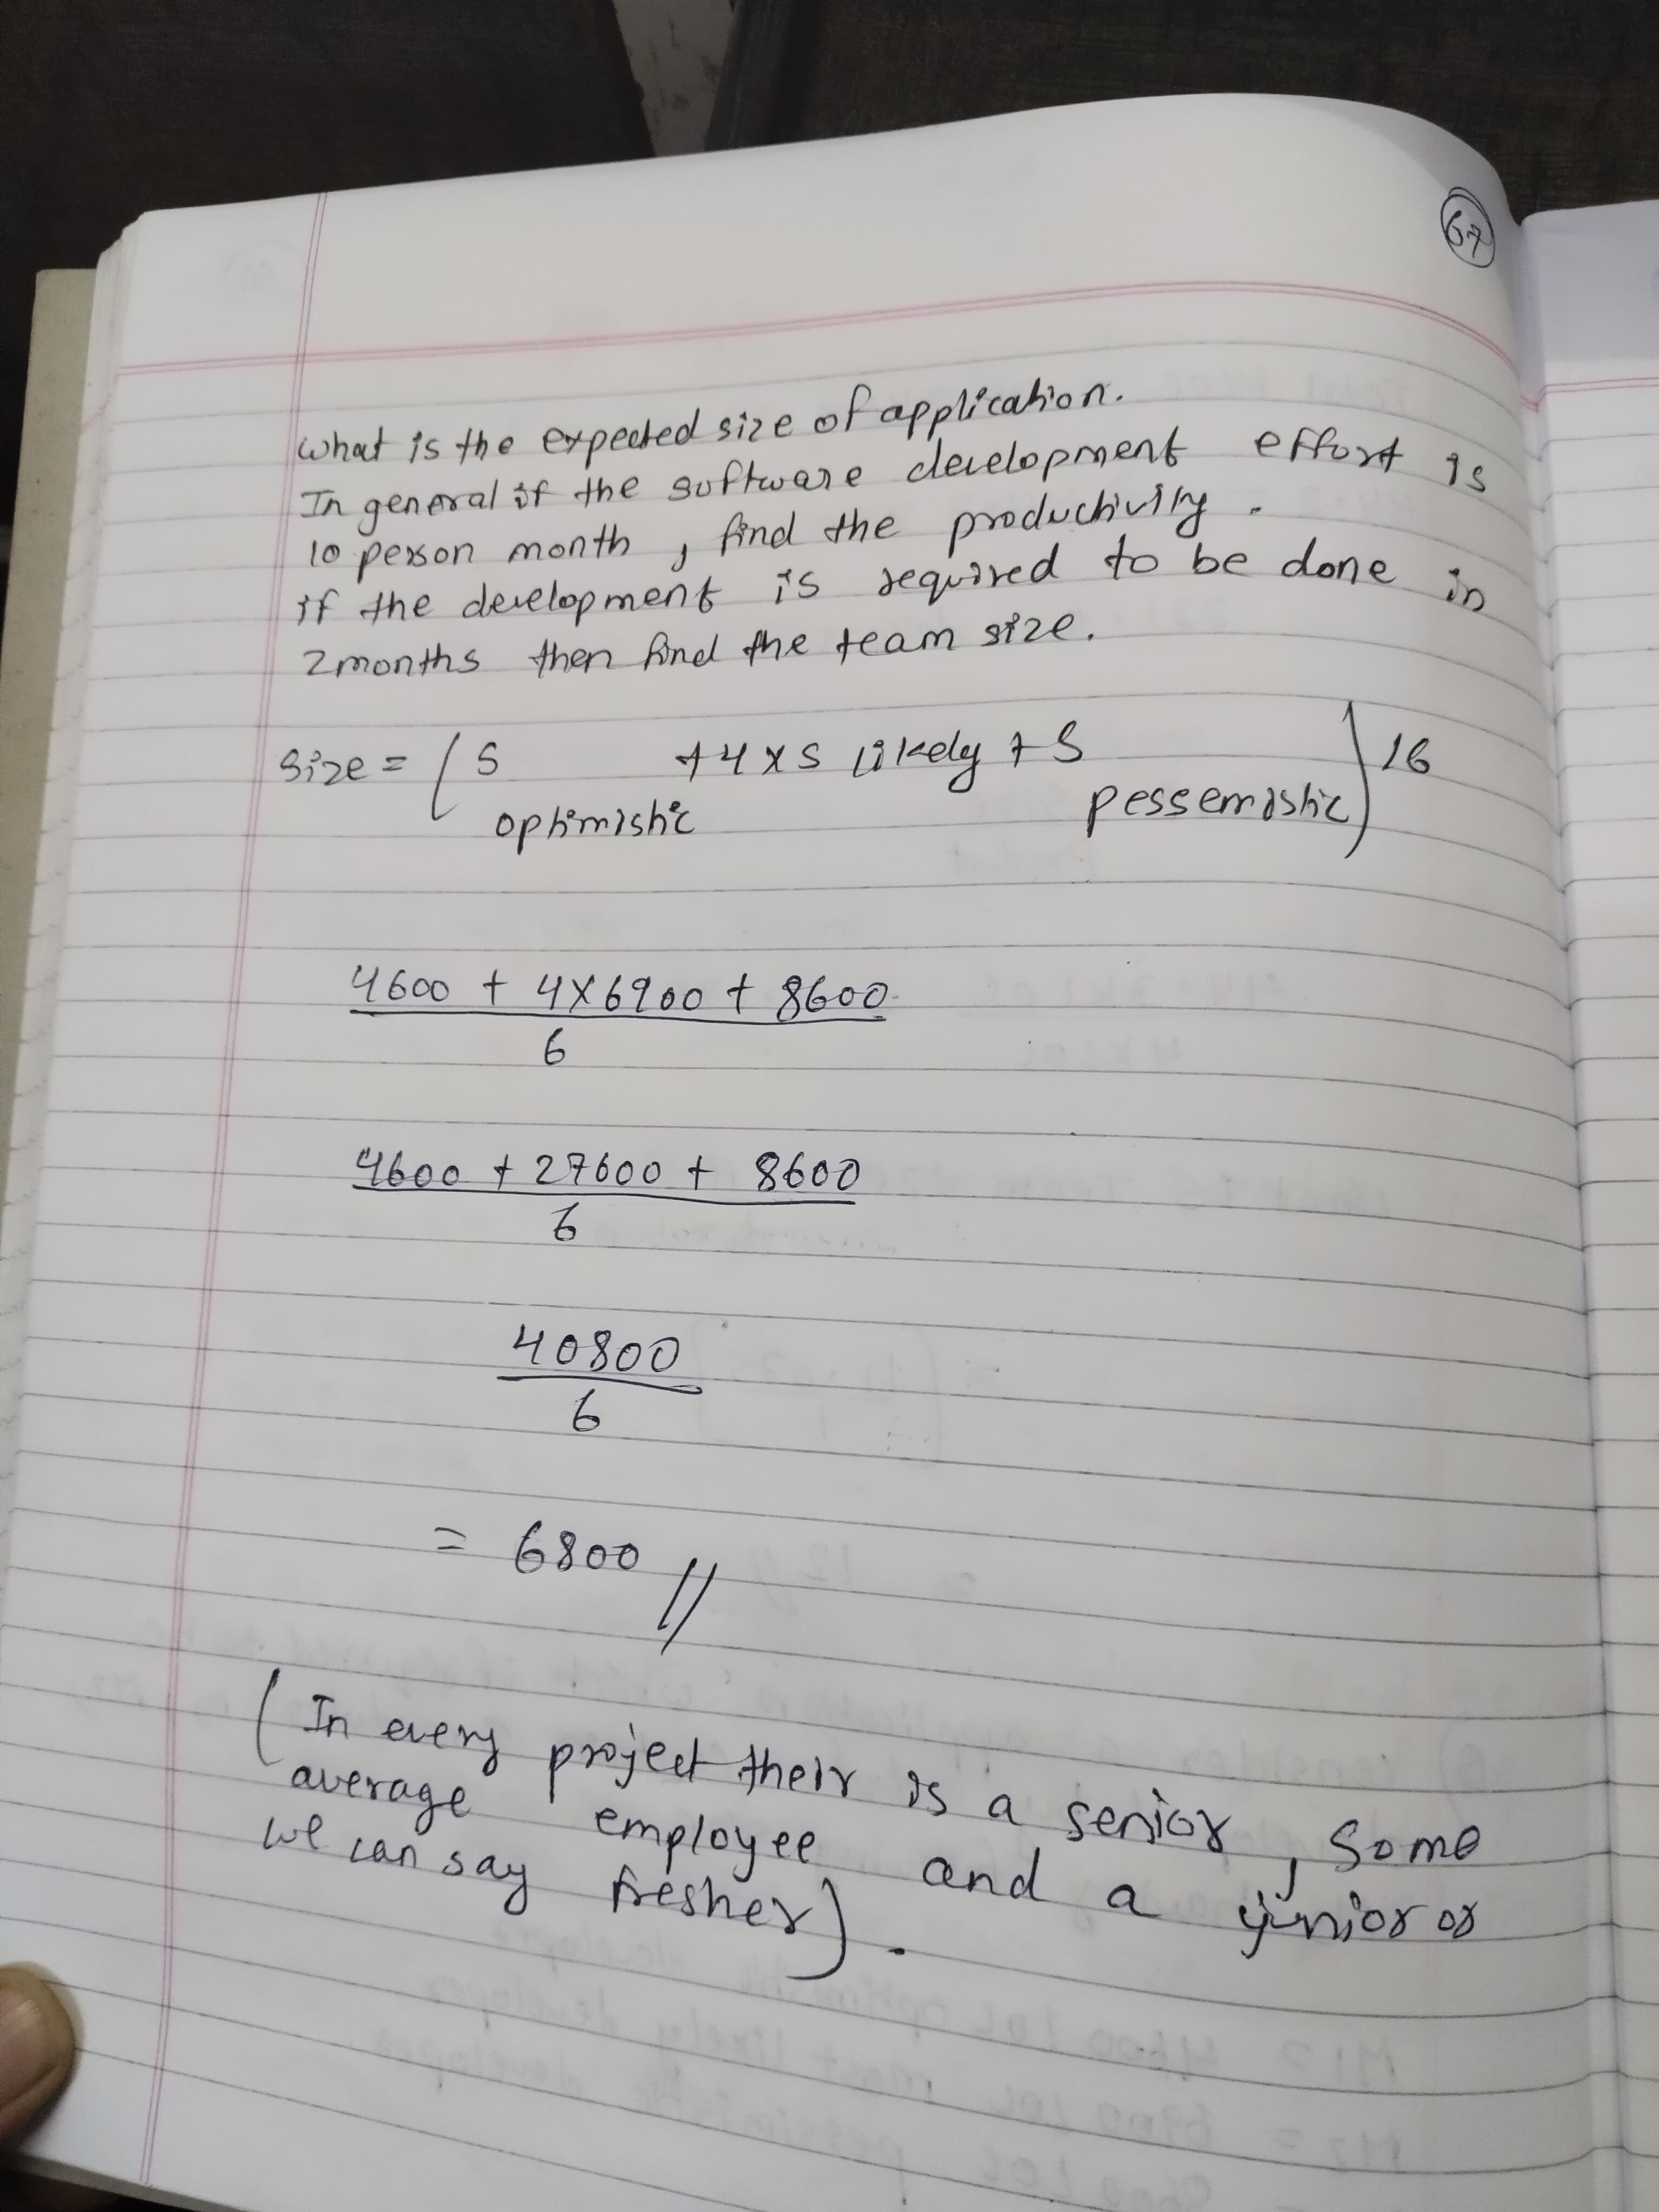 67
What is the expected size of application.
In general if the software development effort is
10 person month, find the productivity.
if the development is required to be done in
2months then find the team size.
Size = (S +4 x S likely + S )16
optimistic pessemistic
4600 + 4x6900 + 8600
6
4600 + 27600 + 8600
6
40800
6
= 6800 //
(In every project their is a senior, some
average employee and a junior or
we can say fresher).